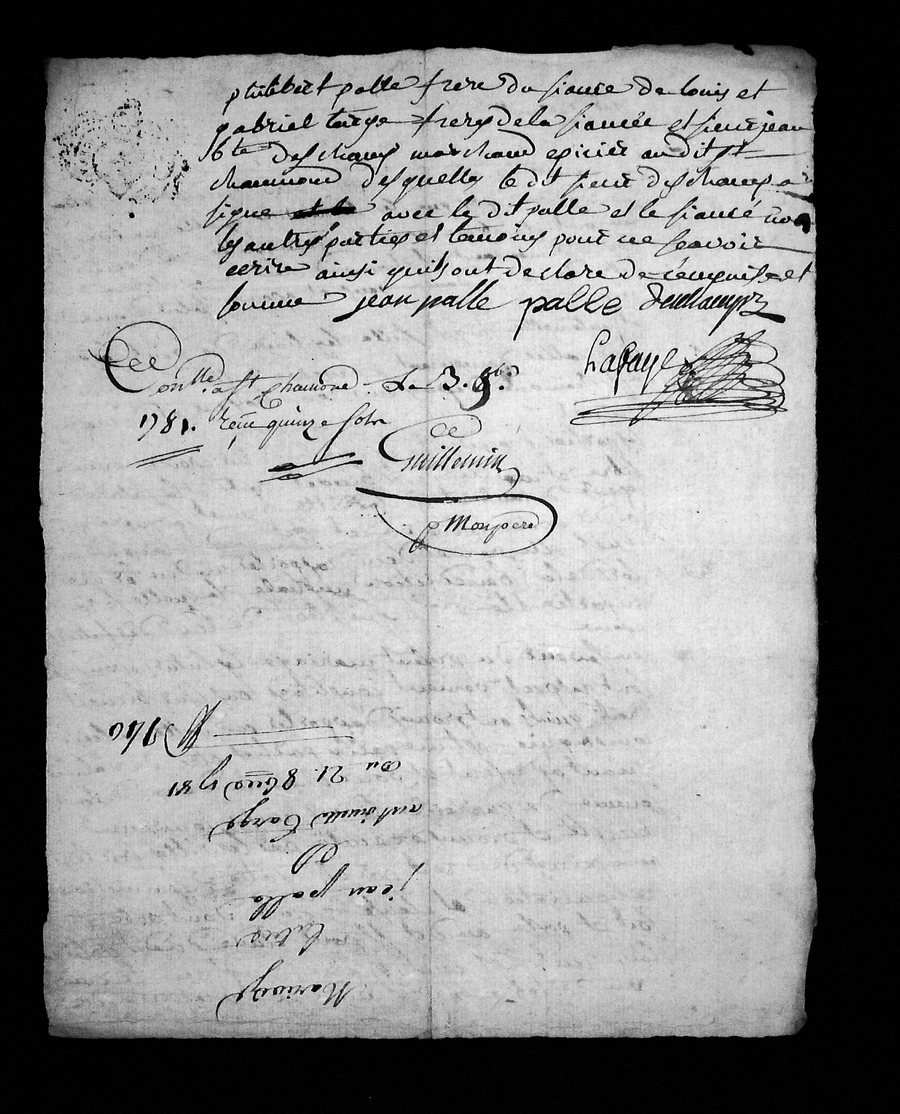 philibert palle frere du fiancé de louis et
gabriel targe freres de la fiancée et sieur jean
bte deschamps marchand epicier audit st
chaumond desquelles le dit sieur deschamps a
signé avec le dit palle et le fiancé non
les autres parties et temoins pour ne scavoir
ecrire ainsi quils ont declaré de ce enquis et
sommés jean palle palle Deschamps
Lafaye
Conllé a St Chamond Le 3. 9bre
1781. reçu quinze sols
Guillemin
p Monpere
Mariage
Entre
jean palle
&
antoinette Targe
Du 21. 8bre 1781